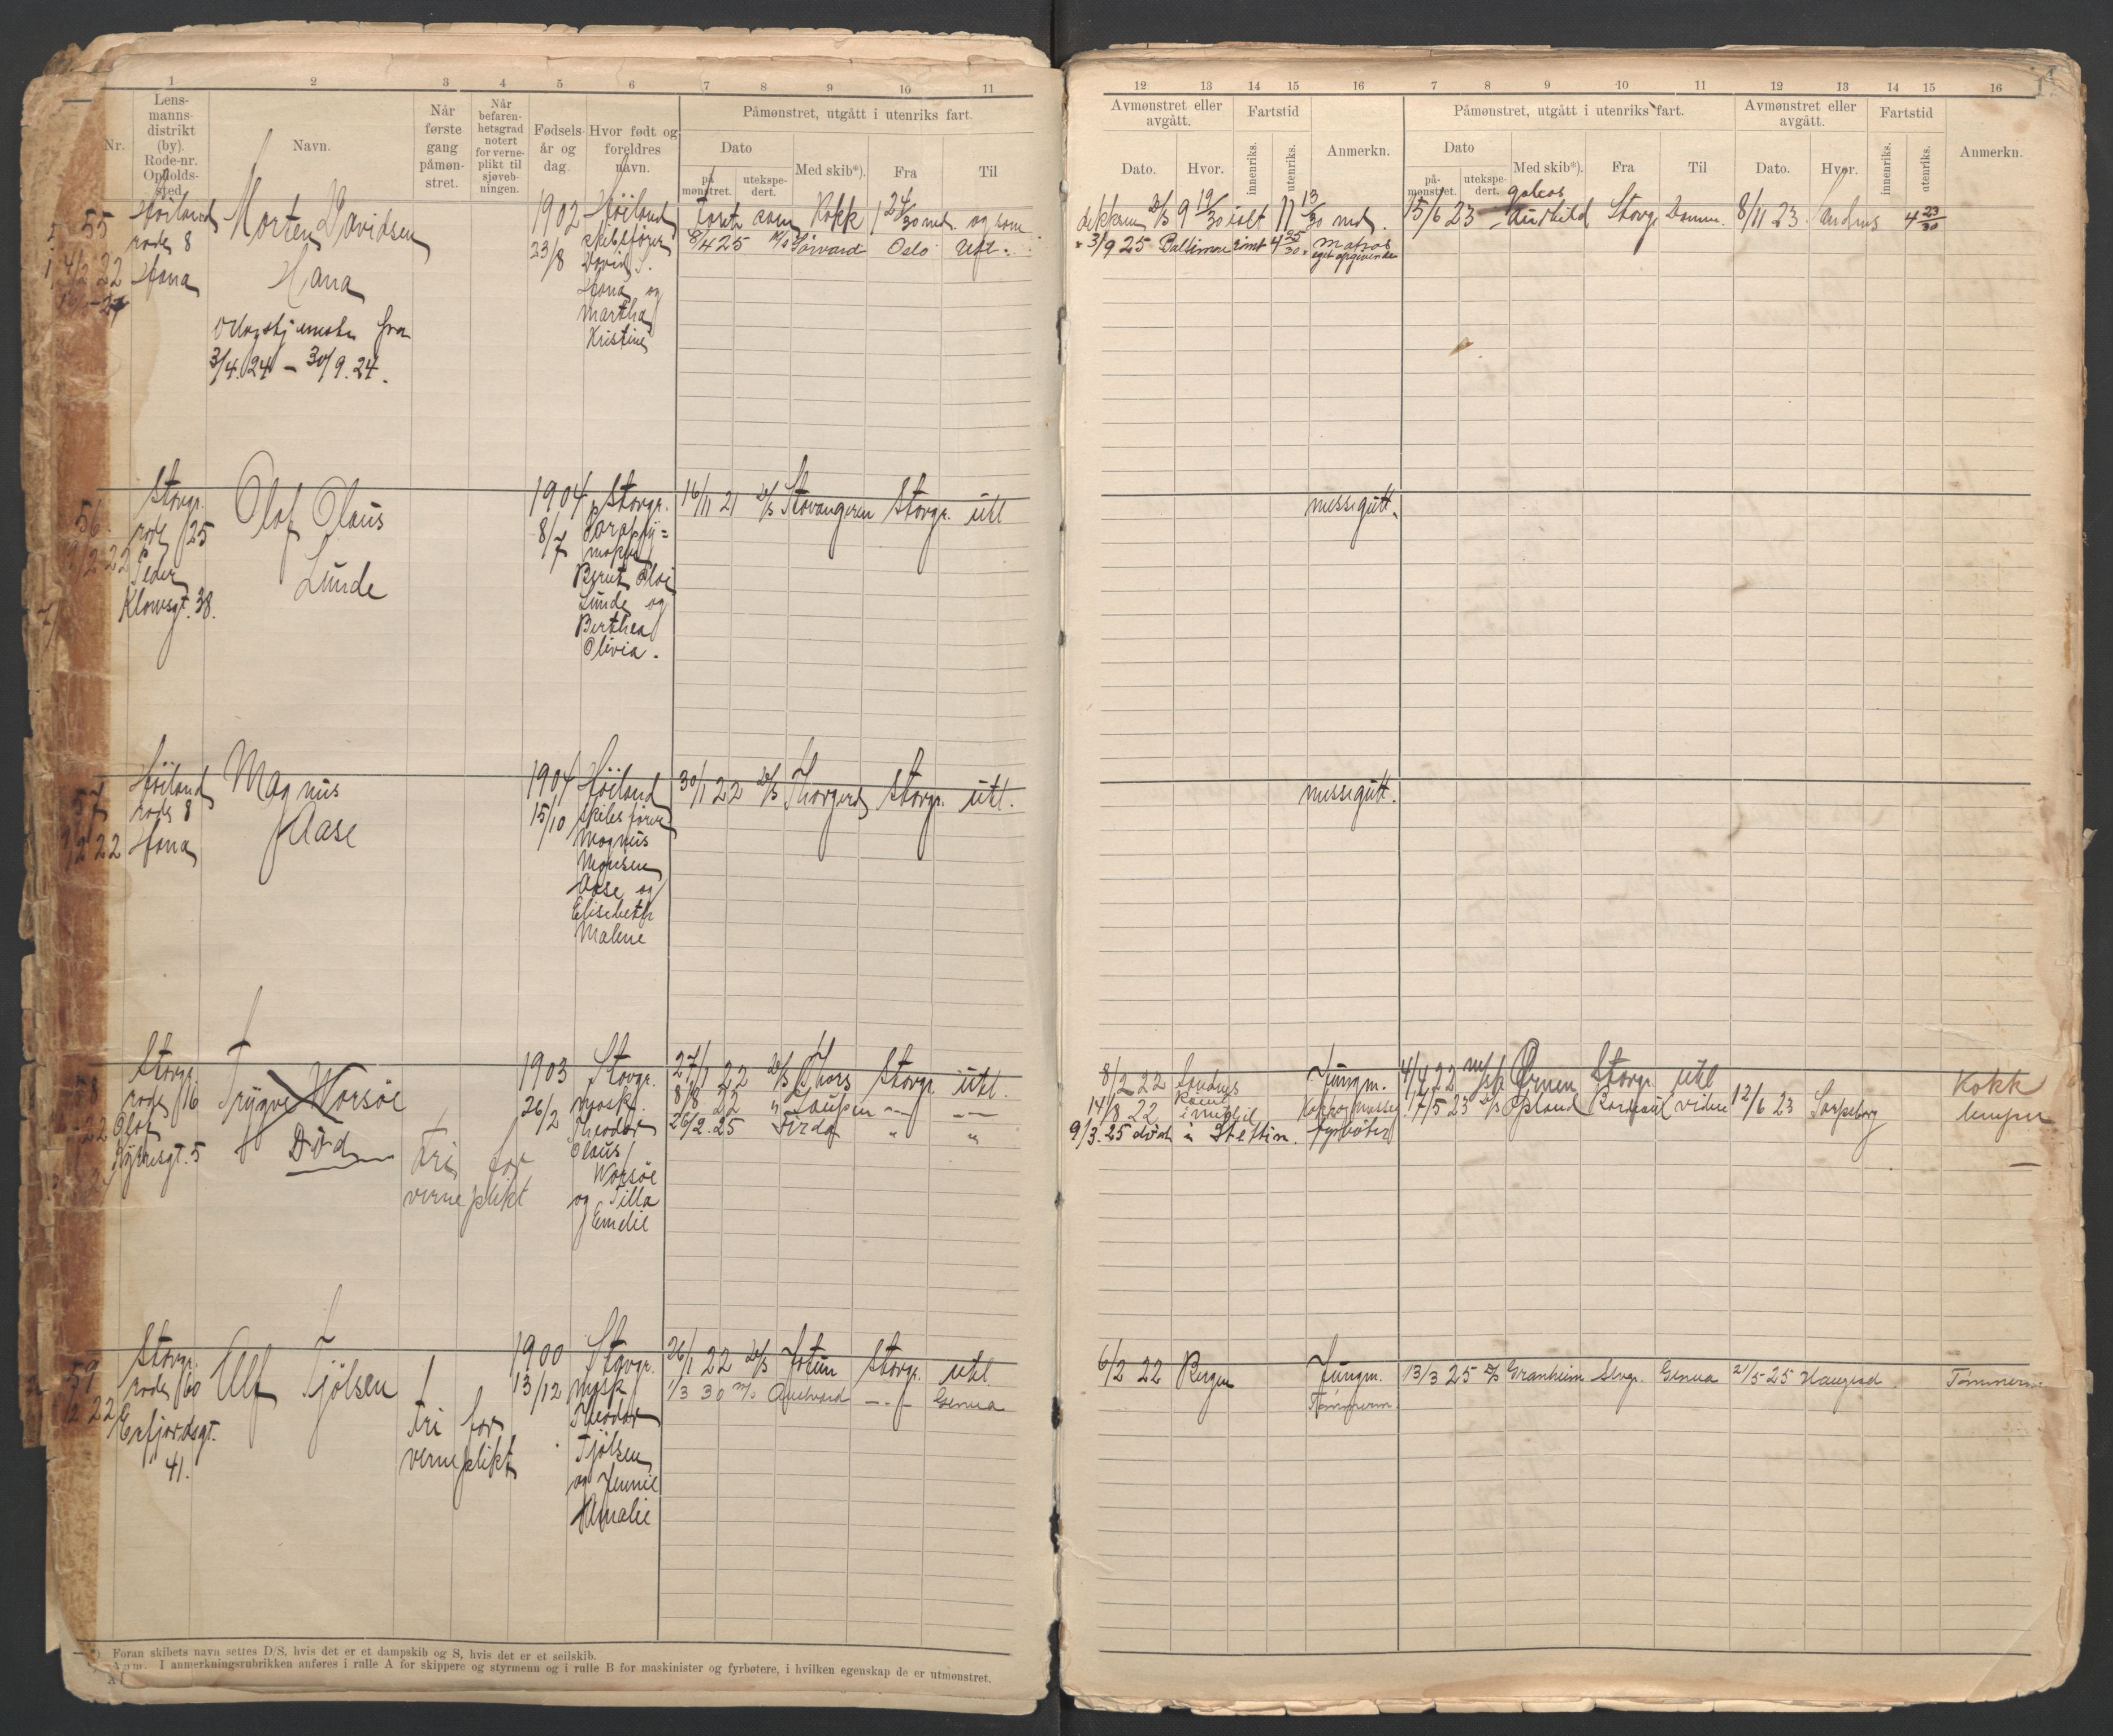 1 2 3 4 5 6 7 8 9 10 11
Nr.
Lens-
manns-
distrikt
(by).
Rode-nr.
Opholds-
sted.
Navn.
Når
første
gang
påmøn-
stret.
Når
befaren-
hetsgrad
notert
for verne-
plikt til
sjøveb-
ningen.
Fødsels-
år og
dag.
Hvor født og
foreldres
navn.
Påmønstret, utgått i utenriks fart.
Dato
på
mønstret.
utekspe-
dert.
Med skib*).
Fra
Til
55
4/2 22
Høiland
rode 8
Hana
Morten Davidsen
Hana
3/4.24 — 30/9.24.
1902
23/8
Høiland
skibsfører
David S.
Hana og
Martha
Kristine
faret som Kokk 1 24/30 md. og som
8/4 25 M/S Oslo Utl.
56.
9/2 22
Stavgr.
rode 25
Peder
Klowsgt. 38.
Olaf Olaus
Lunde
1904
8/7
Stavgr.
Bernt Olai
Lunde og
Berthea
Olivia.
16/11 21 D/S Stavangeren Stavgr. utl
57
9/2 22
Høiland
rode 8
Hana
Magnus
Aase
1904
15/10
Høiland
Skibsfører
Magnus
Monsen
Aase og
Elisabeth
Malene
30/1 22 D/S Thorgerd Stavgr. utl.
58
22
Stavgr.
rode 16
Olaf
Kyrresgt. 5
Trygve Worsøe
Død
Fri for
verneplikt
1903
26/2
Stavgr.
mask.
Theodor
Olaus
Worsøe
og Tilla
Emelie
27/1 22 D/S Thors Stavgr. utl.
8/8 22 " —"— —"—
26/2.25 Firda " "
59
2 22
Stavgr.
rode 60
Erfjordsgt.
41.
Ulf Tjølsen
Fri for
verneplikt
1900
13/12
Stavgr.
mask
Theodor
Tjølsen
og Jennie
Amalie
26/1 22 D/S Jotun Stavgr. utl.
1/3 30 M/S —"— Genua
Foran skibets navn settes D/S, hvis det er et dampskib og S, hvis det er et seilskib.
Anm. I anmerkningsrubrikken anføres i rulle A for skippere og styrmenn og i rulle B for maskinister og fyrbøtere, i hvilken egenskap de er utmønstret.
12 13 14 15 16 7 8 9 10 11 12 13 14 15 16
Avmønstret eller
avgått.
Dato.
Hvor.
Fartstid
innenriks.
utenriks.
Anmerkn.
Påmønstret, utgått i utenriks fart.
Dato
på-
mønstret.
utekspe-
dert.
Med skib*).
Fra
Til
Avmønstret eller
avgått.
Dato.
Hvor.
Fartstid
innenriks.
utenriks.
Anmerkn.
dekksm D/S 9 19/30 ialt 11 13/30 md. 15/6 23 galeas Audhild Stavgr Danm. 8/11 23 Sandnes 4 23/30
3/9 25 Baltimore 4 25/30. Matros
eget opgivende
messegutt.
messegutt.
8/2 22 Sandnes Jungm. 4/4 22 Ørnen Stavgr. utl
14/8 22 17/5 23 D/S Opland 12/6 23 Sarpsborg Kokk
lemper
9/3.25 død i Stettin. fyrbøter
6/2 22 Bergen Jungm. 13/3 25 D/S Granheim Stvgr. Genua 21/5-25 Haugesd. Tømmerm.
Tømmerm.